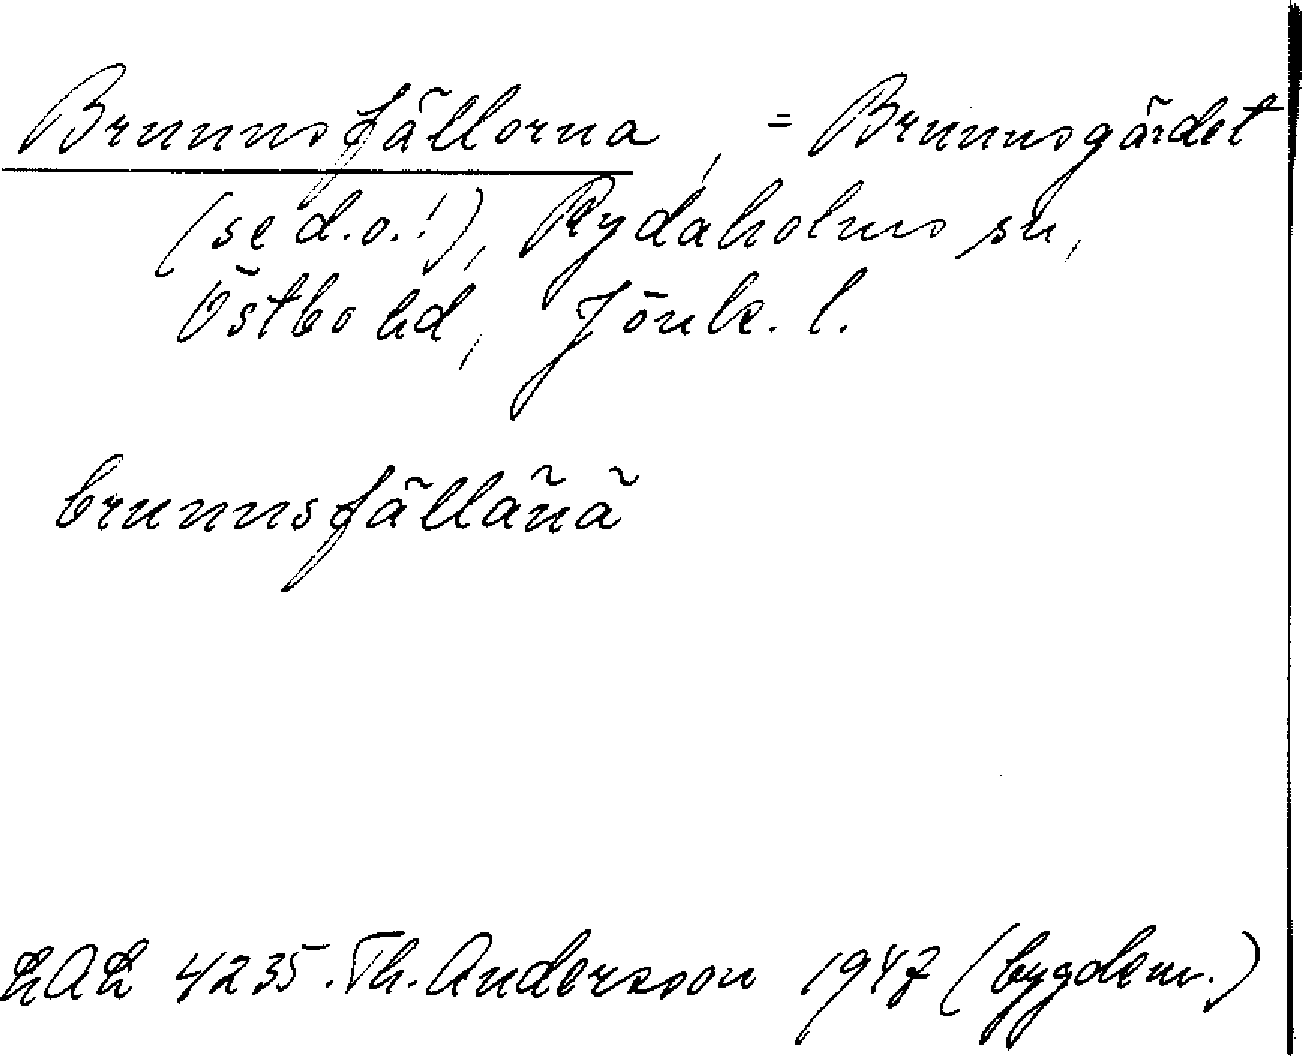 Brunnsfällorna, = Brunnsgärdet
(se d.o.!), Rydaholms sn,
Östbo hd, Jönk. l.
brunnsfällänä
LAL 4235. Th. Andersson 1947 (bygdem.)